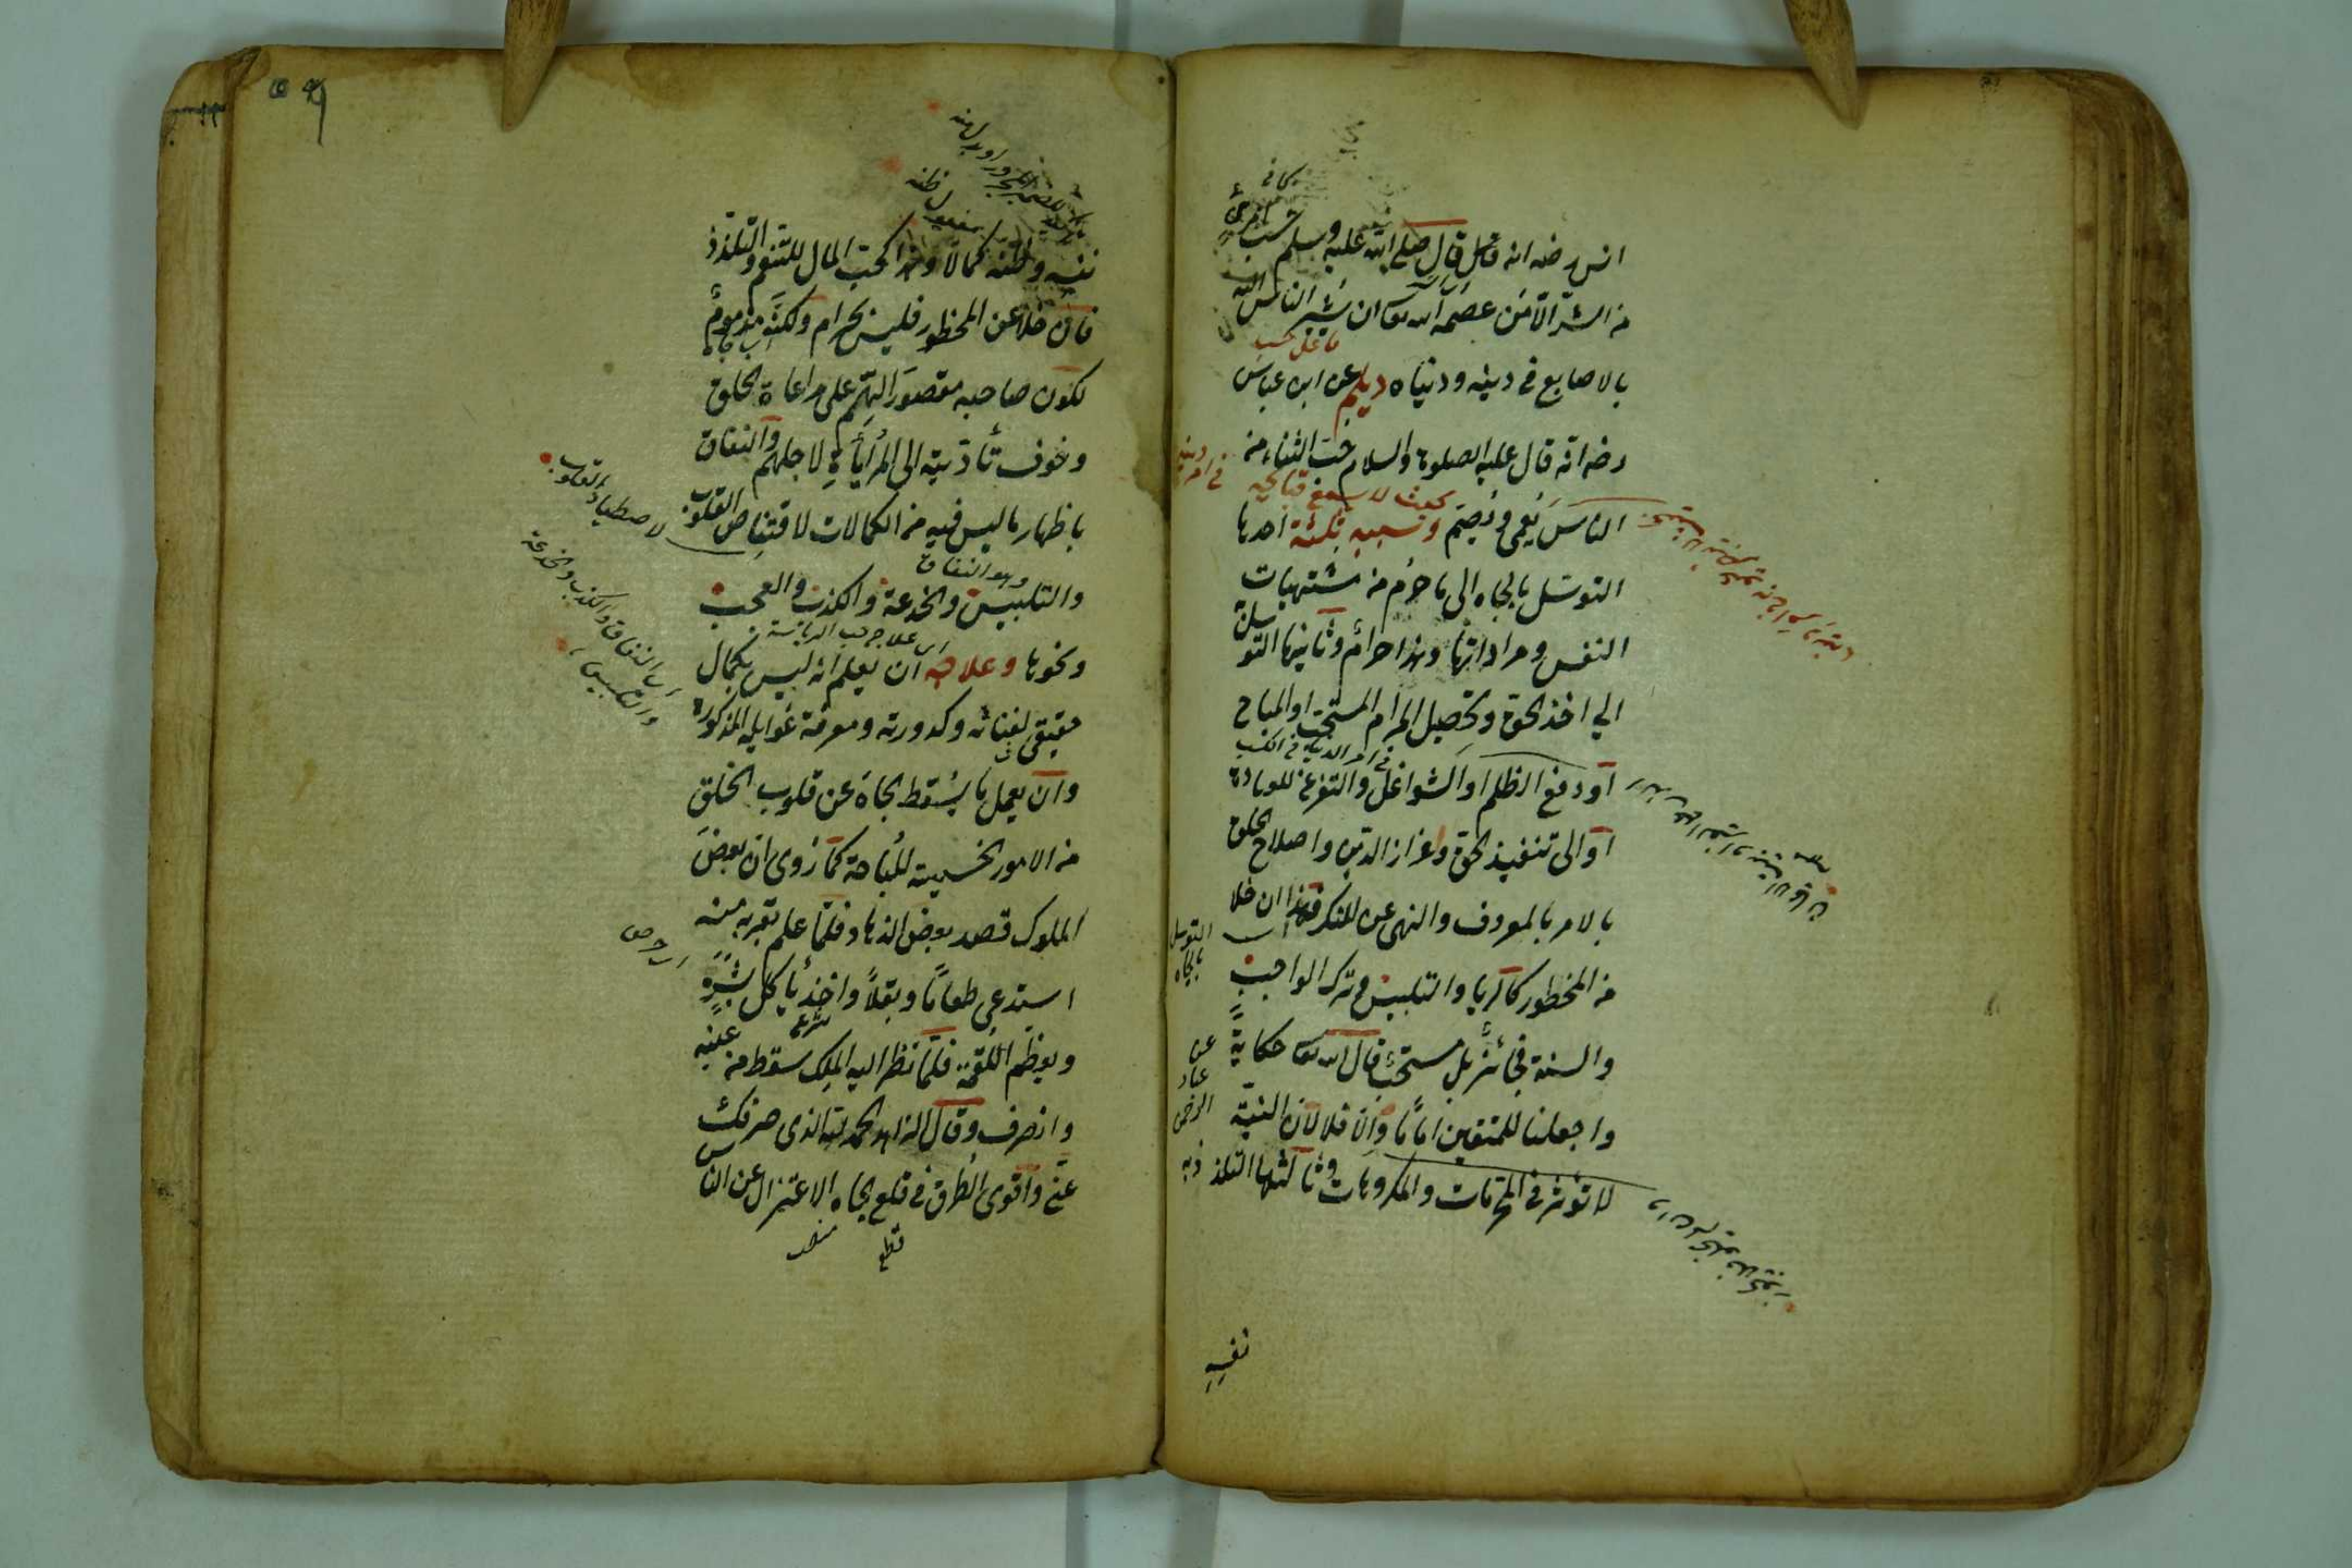 انس رضه انه قال قال صلى الله عليه وسلم حسب امرئ
من الشر الا من عصمه الله تعا ان يشير الناس اليه
بالاصابع في دينه ودنياه ديلم عن ابن عباس
رضه انه قال عليه الصلوة والسلام حب الثناء من
الناس يعمى ويصم وسببه ثلثة احدها
التوسل بالجاه الى ما حرم من مشتهيات
النفس ومراداتها وهذا حرام وثانيها التوسل
الى اخذ الحق وتحصيل المرام المستحب او المباح
او دفع الظلم او الشواغل والتفرغ للعبادة
او الى تنفيذ الحق واعزاز الدين واصلاح الخلق
بالامر بالمعروف والنهى عن المنكر فهذا ان خلا
من المحظور كالريا والتلبيس وترك الواجب
والسنة فجائز بل مستحب قال الله تعا حكاية
واجعلنا للمتقين اماما والا فلا لان النية
لا تؤثر في المحرمات والمكروهات وثالثها التلذذ به
في امر دينه
بحيث لا يسمع قبائحه
في امر الدنيا في الكسب
التوسل
بالجاه
عن
عباد
الرحمن
نفسه
نفسه وظنه كمالا وهذا كحب المال للتنعم والتلذذ
فان خلا عن المحظور فليس بحرام ولكنه مذموم
لكون صاحبه مقصور الهم على مراعاة الخلق
وخوف تأديته الى المرأياة لاجلهم والنفاق
باظهار ما ليس فيه من الكمالات لاقتناص القلوب
والتلبيس والخدعة والكذب والعجب
ونحوها وعلاجه ان يعلم انه ليس بكمال
حقيقى لفنائه وكدورته ومعرفة غوايله المذكورة
وان يعمل ما يسقط الجاه عن قلوب الخلق
من الامور الخسيسة المباحة كما روى ان بعض
الملوك قصد بعض الزهاد فلما علم بقربه منه
استدعى طعاما وبقلا واخذ يأكل بشره
ويعظم اللقمة فلما نظر اليه الملك سقط من عينه
وانصرف وقال الزاهد الحمد لله الذى صرفك
عنى واقوى الطرق في قلع الجاه الاعتزال عن الناس
مفعول ظنه
لاصطياد القلوب
وهو النفاق
اى علاج حب الرياسة
اى النفاق والكذب والخدعة
والتلبيس
اى حرص
قطع
منصب